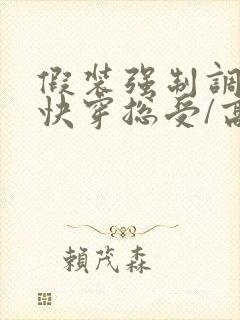 假装强制調
快穿总受/高
賴茂森